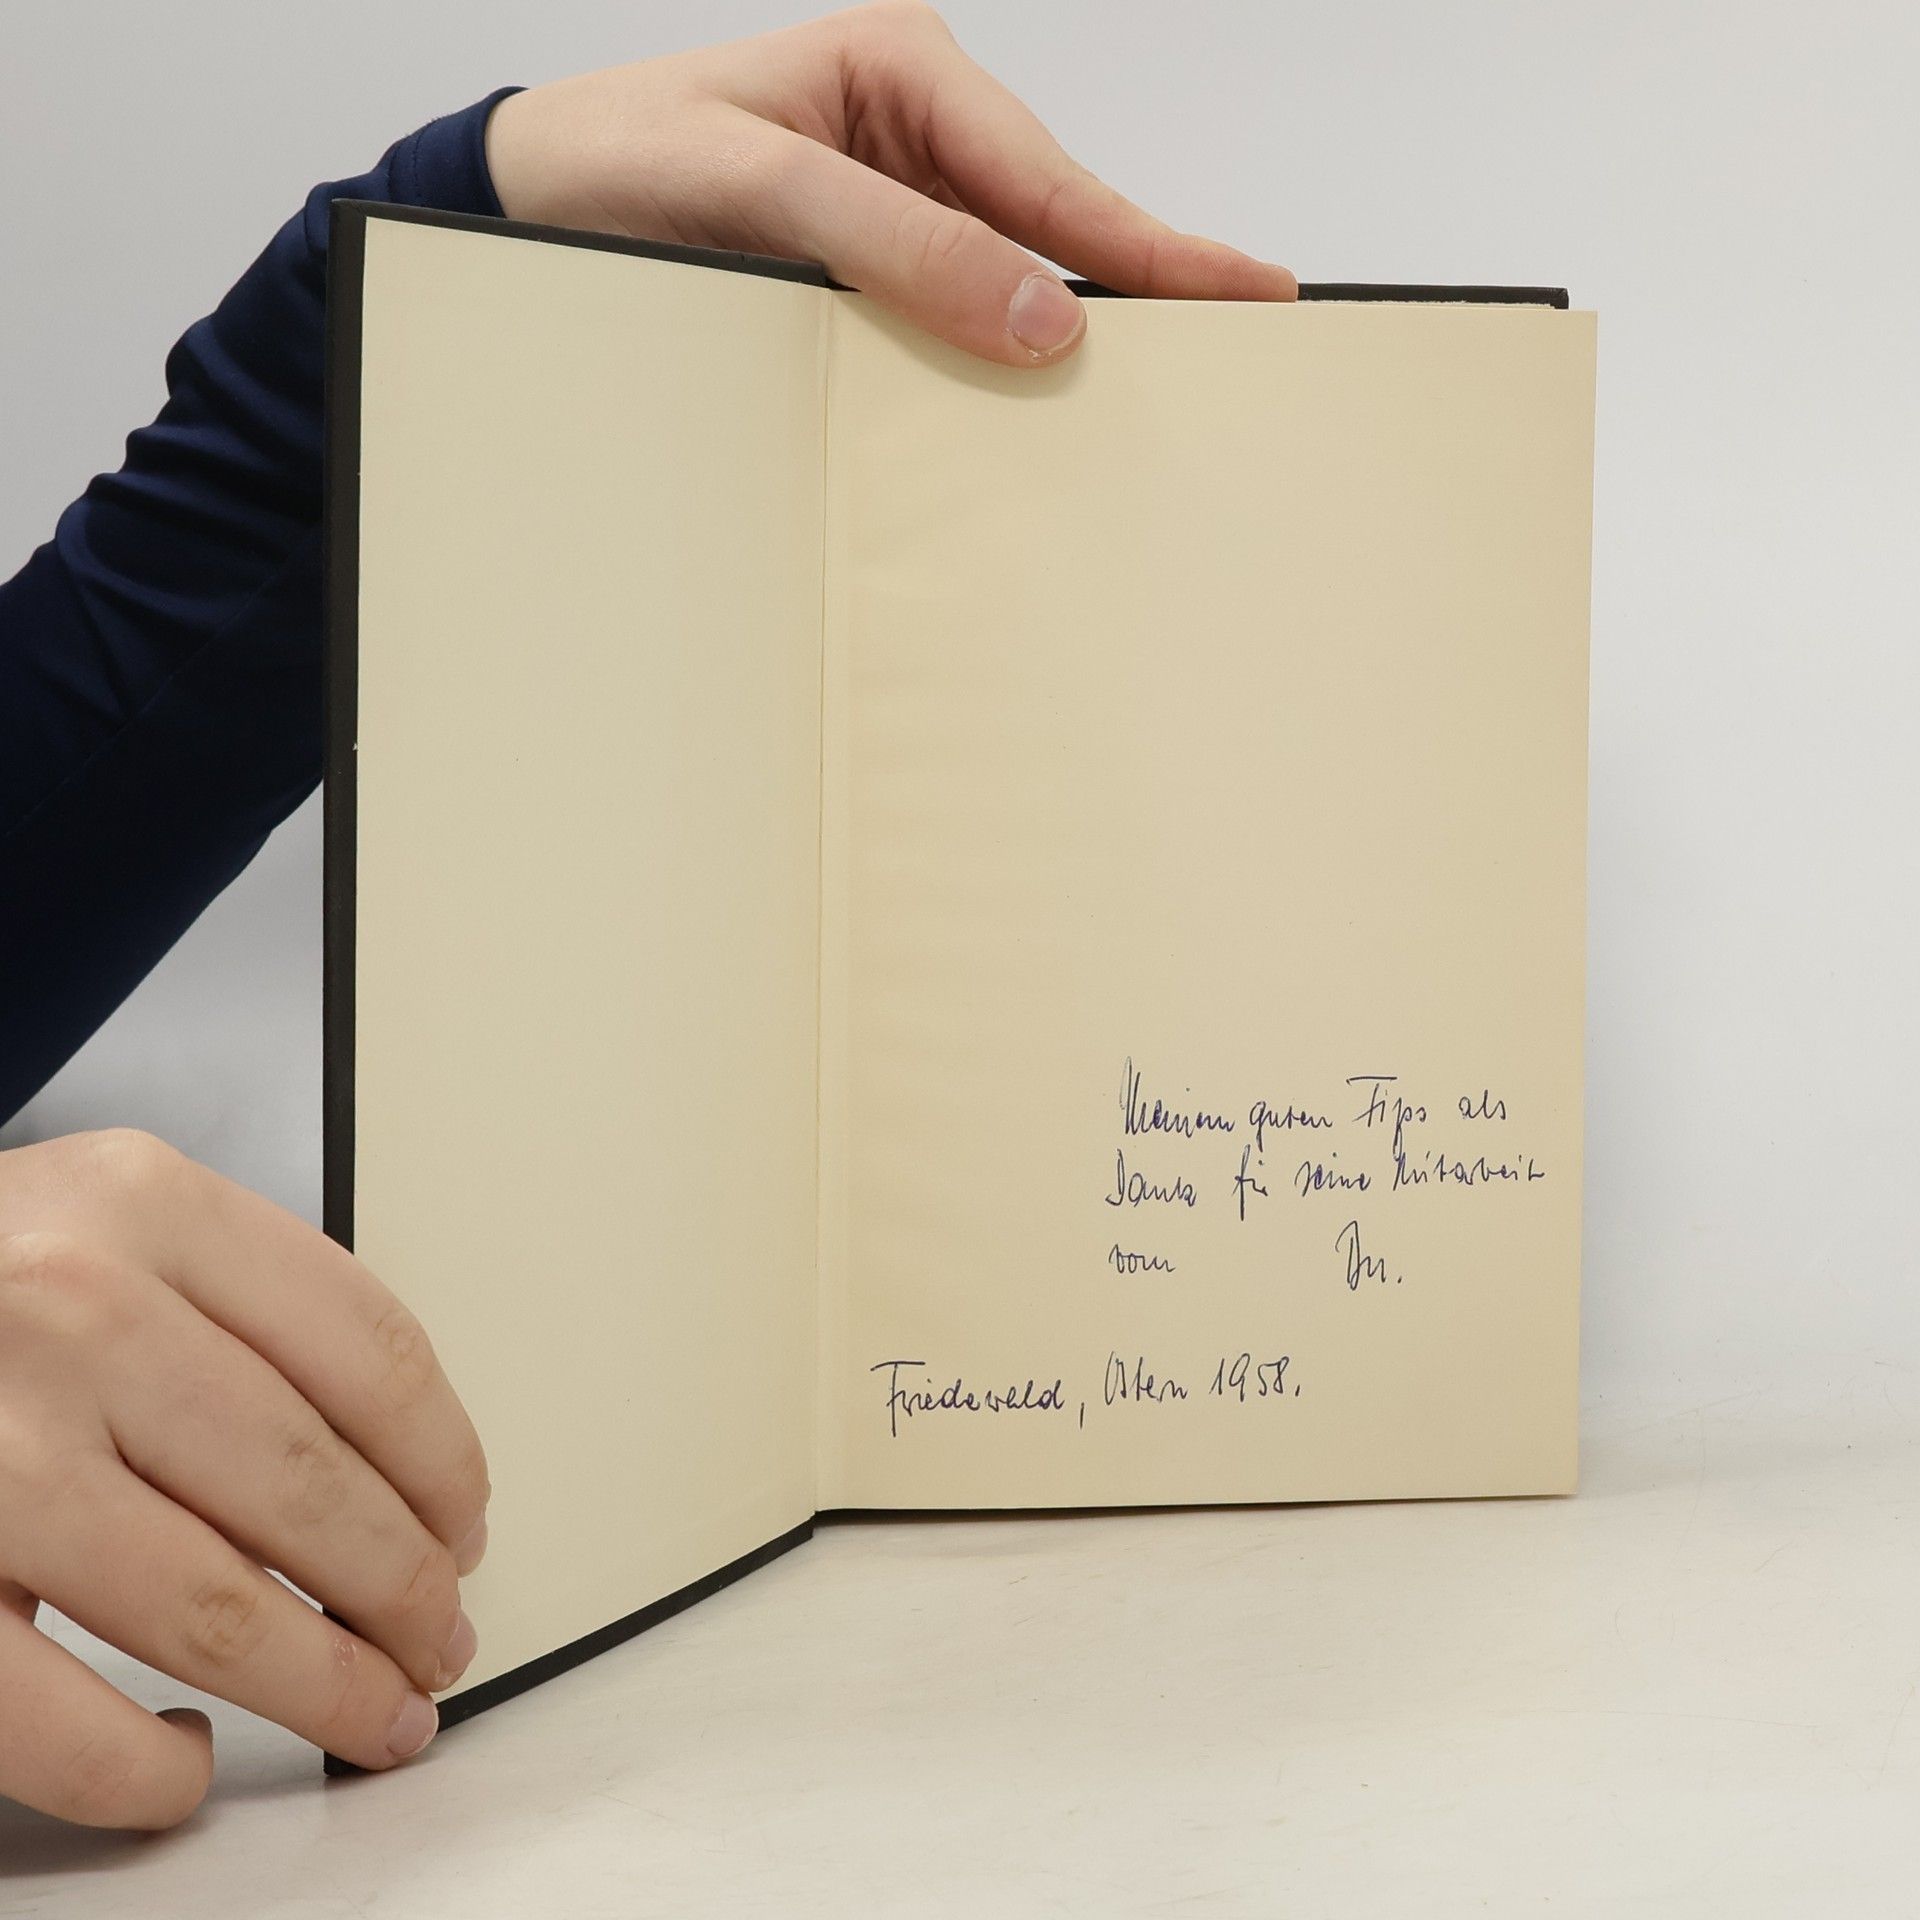 Meinem guten Fips als
Dank für seine Mitarbeit
vom
Friedewald, Ostern 1958.